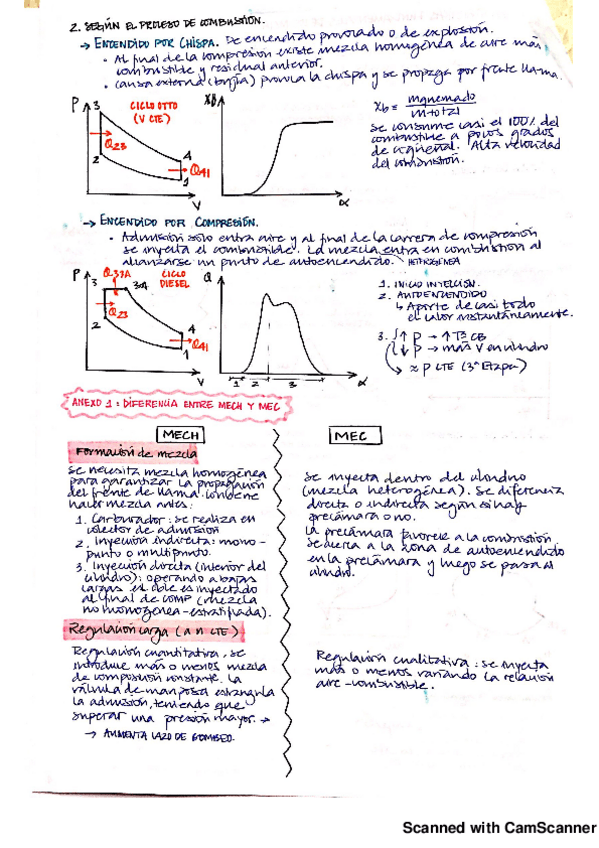 2. SEGÚN EL PROCESO DE COMBUSTIÓN.
→ ENCENDIDO POR CHISPA. De encendido provocado o de explosión.
• Al final de la compresión existe mezcla homogénea de aire más
combustible y residual anterior.
• Causa externa (bujía) provoca la chispa y se propaga por frente llama.
P
3
CICLO OTTO
(V CTE)
2
Q23
4
Q41
1
V
XB
α
Xb = mquemado / mtotal
se consume casi el 100% del
combustible a pocos grados
de cigüeñal. Alta velocidad
del combustión.
→ ENCENDIDO POR COMPRESIÓN.
• Admisión solo entra aire y al final de la carrera de compresión
se inyecta el combustible. La mezcla entra en combustión al
alcanzarse un punto de autoencendido. HETEROGÉNEA
P
Q33A
3
3A
CICLO
DIESEL
2
Q23
4
Q41
1
V
Q
1 2 3
α
1. INICIO INYECCIÓN.
2. AUTOENCENDIDO
↳ Aporte de casi todo
el calor instantáneamente.
3. ↑ P → ↑ Tª CB
↓ P → más V en cilindro
↳ ≈ P CTE (3ª Etapa)
ANEXO 1: DIFERENCIA ENTRE MECH Y MEC
MECH
Formación de mezcla
Se necesita mezcla homogénea
para garantizar la propagación
del frente de llama. Conviene
hacer mezcla antes:
1. Carburador: se realiza en
colector de admisión
2. Inyección indirecta: mono-
punto o multipunto.
3. Inyección directa (interior del
cilindro): operando a bajas
cargas el cble es inyectado
al final de comp (mezcla
no homogénea - estratificada).
Regulación carga (a n CTE)
Regulación cuantitativa. Se
introduce más o menos mezcla
de composición constante. La
válvula de mariposa estrangula
la admisión, teniendo que
superar una presión mayor. →
→ AUMENTA LAZO DE BOMBEO.
MEC
Se inyecta dentro del cilindro
(mezcla heterogénea). Se diferencia
directa o indirecta según si hay
precámara o no.
La precámara favorece a la combustión
Se acerca a la zona de autoencendido
en la precámara y luego se pasa al
cilindro.
Regulación cualitativa: se inyecta
más o menos variando la relación
aire-combustible.
Scanned with CamScanner